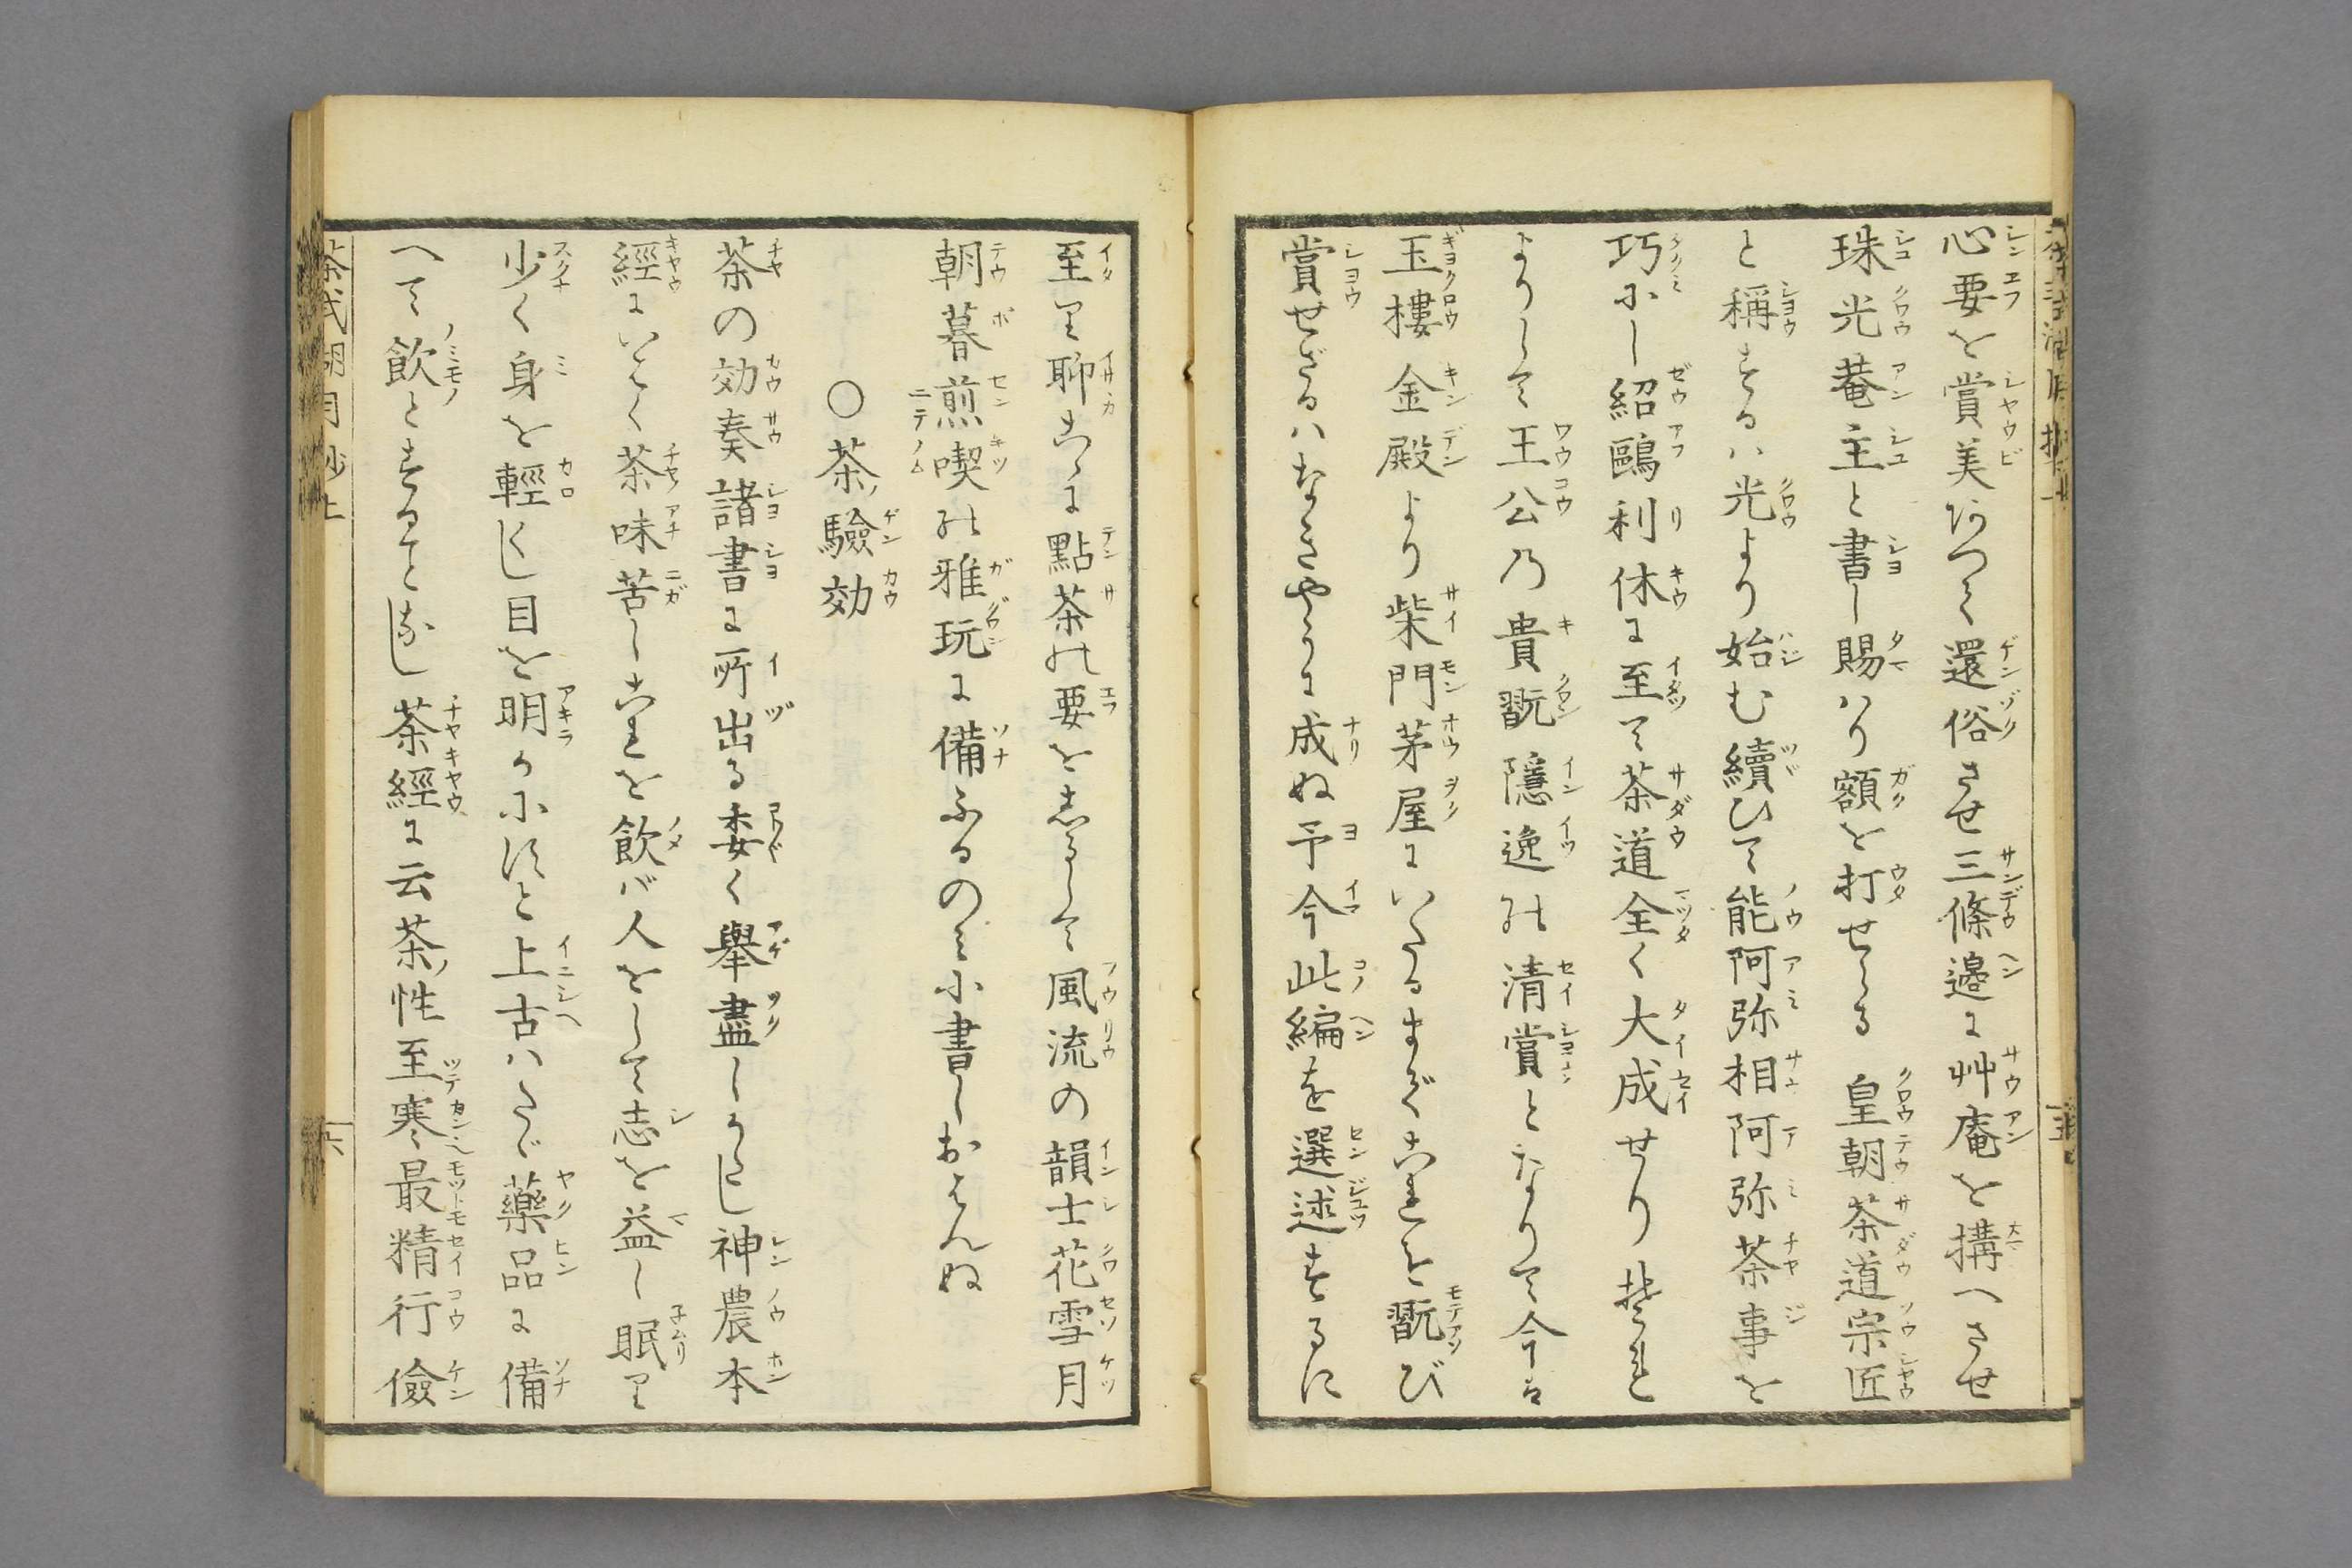 心要を賞美ありて還俗させ三條邉に艸庵を搆へさせ
珠光菴主と書し賜ハり額を打せらる 皇朝茶道宗匠
と稱するハ光より始む續ひて能阿弥相阿弥茶事を
巧にし紹鷗利休に至て茶道全く大成せりそれ
よりして王公乃貴翫隱逸の清賞となりて今は
玉樓金殿より柴門茅屋にいたるまでこれを翫び
賞せざるハなきやうに成ぬ予今此編を選述するに
至り聊こゝに點茶の要をしるして風流の韻士花雪月
朝暮煎喫の雅玩に備ふるのみ小書しおはんぬ
○茶ノ驗効
茶の効奏諸書に所出る委く擧盡しがたし神農本
經にいはく茶味苦しこれを飲バ人をして志を益し眠り
少く身を輕くし目を明かにすと上古ハたゞ藥品に備
へて飲とすることなし茶經に云茶ノ性至寒最精行儉
茶式湖月抄上
六